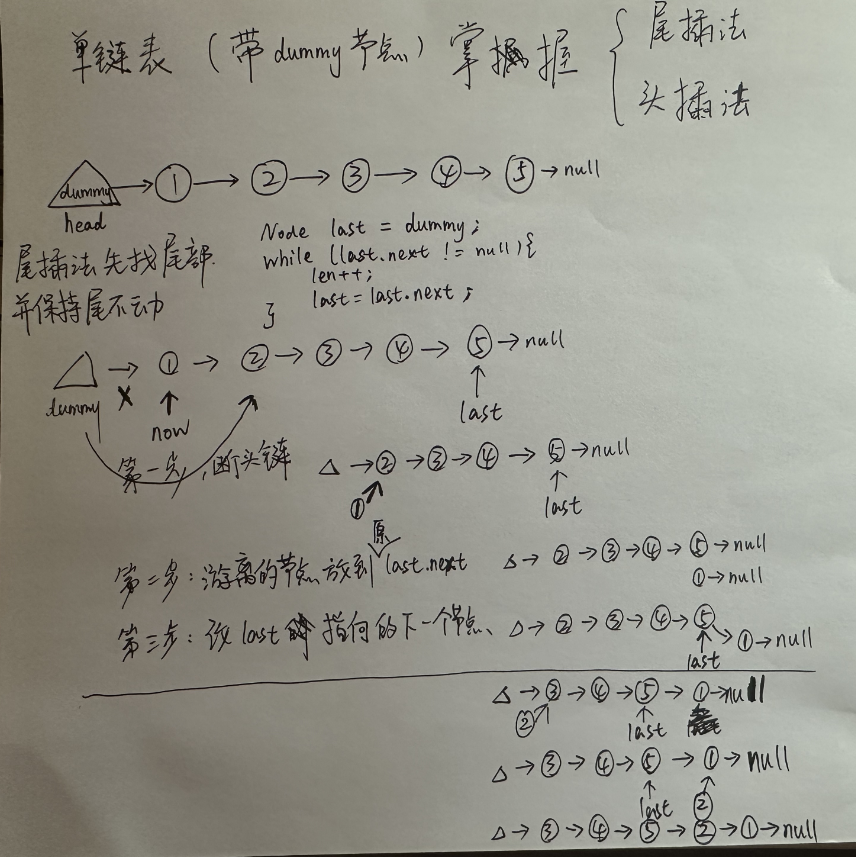 单链表（带dummy节点）掌握 { 尾插法
头插法
dummy → ① → ② → ③ → ④ → ⑤ → null
head
尾插法先找尾部
并保持尾不动
Node last = dummy;
while (last.next != null){
len++;
last = last.next;
}
→ ① → ② → ③ → ④ → ⑤ → null
dummy × now last
第一步,断头链
△ → ② → ③ → ④ → ⑤ → null
① last
原
第二步:游离的节点放到last.next
△ → ② → ③ → ④ → ⑤ → null
① → null
第三步:该last指向的下一个节点、
△ → ② → ③ → ④ → ⑤ → ① → null
last
△ → ③ → ④ → ⑤ → ① → null
② last
△ → ③ → ④ → ⑤ → ① → null
last ②
△ → ③ → ④ → ⑤ → ② → ① → null